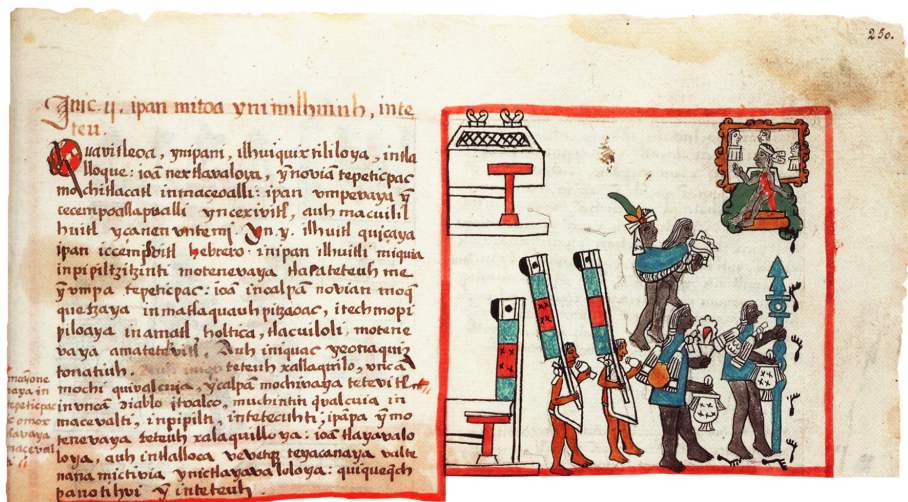 250.
Inic. ij. ipan mitoa yn imilhuiuh, inte
teu.
Quavitleoa, ynipani, illhuiquixtililoya, intla
lloque: ioã nextlavaloya, ỹ novia tepeticpac
mochitlacatl inmaceoalli: ipan ompevaya ỹ
cecempoallapualli yncexivitl, auh macuilil
huitl ycanen ontemj. Yn .y. ilhuitl quiçaya
ipan iccemilhuitl hebrero. inipan ilhuitli miquia
inpipiltzitzinti motenevaya tlacateteuh me
ỹ vmpa tepeticpac: ioã incalpã novian moq̃
quetzaya inmatlaquauh pitzaoac, itechmopi
piloaya inamatl, holtica, tlacuiloli, motene
vaya amatetevitl. Auh iniquac yeonaquiz
tonatiuh. teteuh xallaquilo, vnca
mochi quivalcuia, ycalpa mochivaya tetevitl
inuncã diablo itvalco, muchintin qualcuia in
macevalti, inpipilti, intetecuhti, ipãpa ỹ mo
tenevaya teteuh xalaquilloya: ioã tlayavalo
loya, auh intlalloca vevetq̃ teyacanaya valte
nana mictivia ynictlayavaloloya: quiqueqch
panotihvi ỹ inteteuh.
tepeticpac
maceval